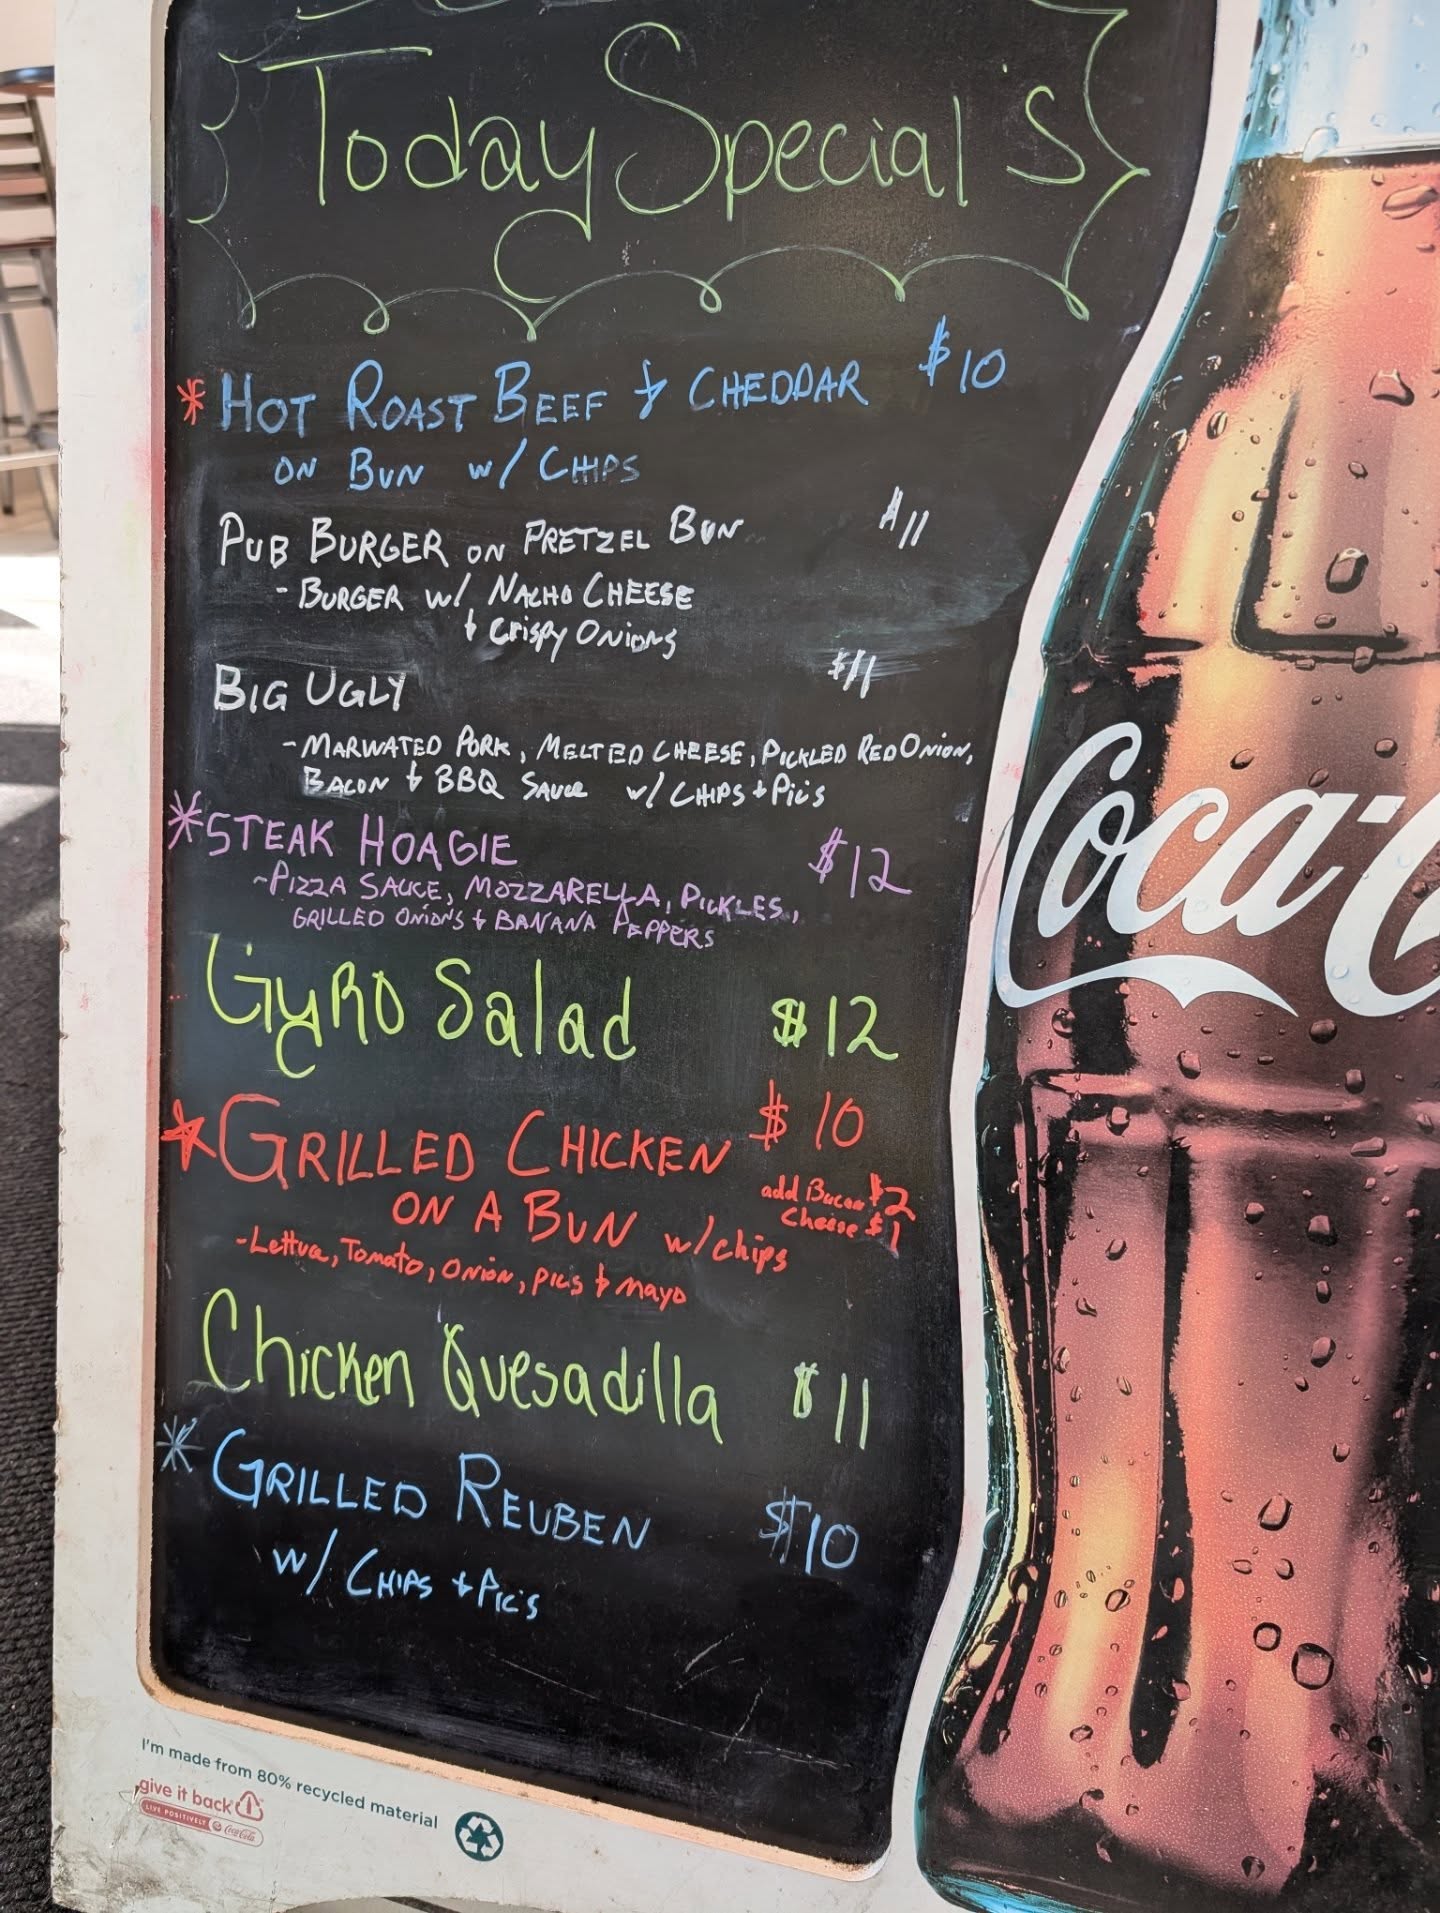 Today Special's
* HOT ROAST BEEF & CHEDDAR $10
ON BUN w/ CHIPS
PUB BURGER ON PRETZEL BUN $11
- BURGER w/ NACHO CHEESE
& Crispy Onions
BIG UGLY $11
- MARINATED PORK, MELTED CHEESE, PICKLED RED ONION,
BACON & BBQ SAUCE w/ CHIPS + Pic's
* STEAK HOAGIE $12
- PIZZA SAUCE, MOZZARELLA, PICKLES,
GRILLED ONIONS & BANANA PEPPERS
GYRO Salad $12
* GRILLED CHICKEN $10
ON A BUN w/ chips
add Bacon $2
Cheese $1
- Lettuce, Tomato, Onion, pics & mayo
Chicken Quesadilla $11
* GRILLED REUBEN $10
w/ CHIPS + Pic's
Coca-C
I'm made from 80% recycled material
give it back
LIVE POSITIVELY Coca-Cola